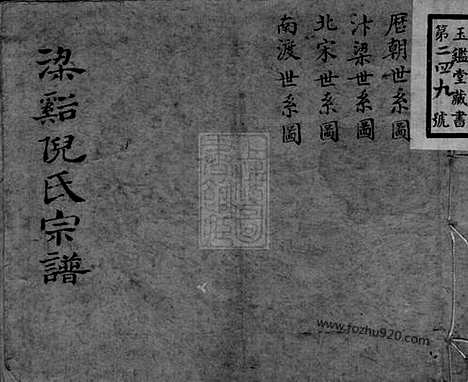 玉鑑堂藏書
第二四九號
厯朝世系圖
汴梁世系圖
北宋世系圖
南渡世系圖
梁谿倪氏宗譜
www.fozhu920.com